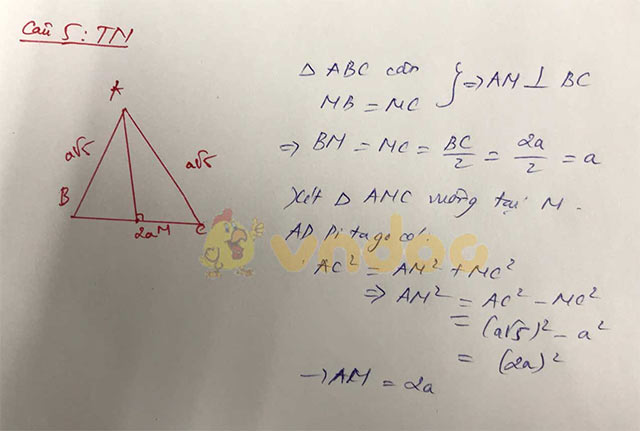 Câu 5: TN
A
a√5
a√5
B
C
2a
M
Δ ABC cân
MB = MC
} ⇒ AM ⊥ BC
⇒ BM = MC = BC/2 = 2a/2 = a
Xét Δ AMC vuông tại M.
AD Pitago có:
AC² = AM² + MC²
⇒ AM² = AC² - MC²
= (a√5)² - a²
= (2a)²
→ AM = 2a
vndoc